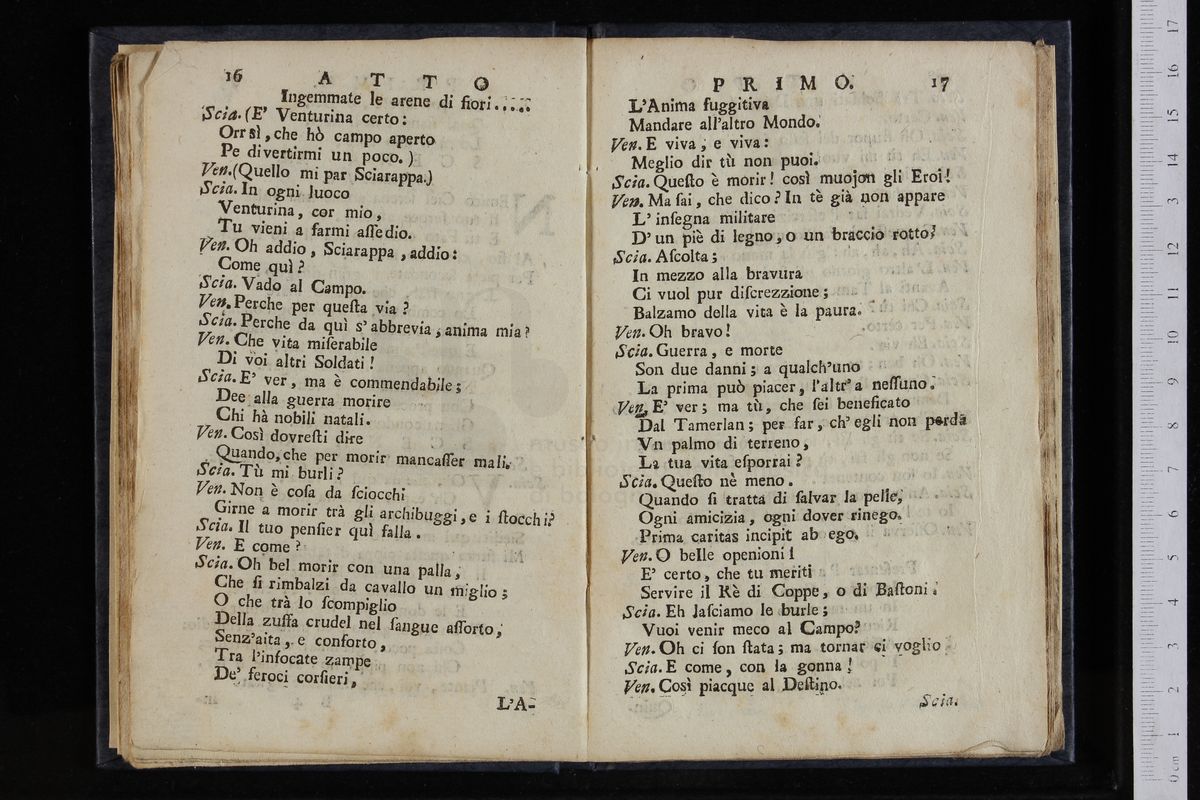 16 ATTO
Ingemmate le arene di fiori.....
Scia.(E' Venturina certo:
Orrsì, che hò campo aperto
Pe divertirmi un poco.)
Ven.(Quello mi par Sciarappa.)
Scia. In ogni luoco
Venturina, cor mio,
Tu vieni a farmi aſſedio.
Ven. Oh addio, Sciarappa, addio:
Come quì?
Scia. Vado al Campo.
Ven. Perche per queſta via?
Scia. Perche da quì s'abbrevia, anima mia?
Ven. Che vita miſerabile
Di voi altri Soldati!
Scia. E' ver, ma è commendabile;
Dee alla guerra morire
Chi hà nobili natali.
Ven. Così dovreſti dire
Quando, che per morir mancaſſer mali.
Scia. Tù mi burli?
Ven. Non è coſa da ſciocchi
Girne a morir trà gli archibuggi, e i ſtocchi?
Scia. Il tuo penſier quì falla.
Ven. E come?
Scia. Oh bel morir con una palla,
Che ſi rimbalzi da cavallo un miglio;
O che trà lo ſcompiglio
Della zuffa crudel nel ſangue aſſorto,
Senz'aita, e conforto,
Tra l'infocate zampe
De' feroci corſieri,
L'A-
PRIMO. 17
L'Anima fuggitiva
Mandare all'altro Mondo.
Ven. E viva, e viva:
Meglio dir tù non puoi.
Scia. Queſto è morir! così muojon gli Eroi!
Ven. Ma ſai, che dico? In tè già non appare
L' inſegna militare
D' un piè di legno, o un braccio rotto?
Scia. Aſcolta;
In mezzo alla bravura
Ci vuol pur diſcrezzione;
Balzamo della vita è la paura.
Ven. Oh bravo!
Scia. Guerra, e morte
Son due danni; a qualch'uno
La prima può piacer, l'altr' a neſſuno.
Ven. E' ver; ma tù, che ſei beneficato
Dal Tamerlan; per far, ch' egli non perda
Vn palmo di terreno,
La tua vita eſporrai?
Scia. Queſto nè meno.
Quando ſi tratta di ſalvar la pelle,
Ogni amicizia, ogni dover rinego.
Prima caritas incipit ab ego.
Ven. O belle openioni!
E' certo, che tu meriti
Servire il Rè di Coppe, o di Baſtoni.
Scia. Eh laſciamo le burle;
Vuoi venir meco al Campo?
Ven. Oh ci ſon ſtata; ma tornar ci voglio
Scia. E come, con la gonna!
Ven. Così piacque al Deſtino.
Scia.